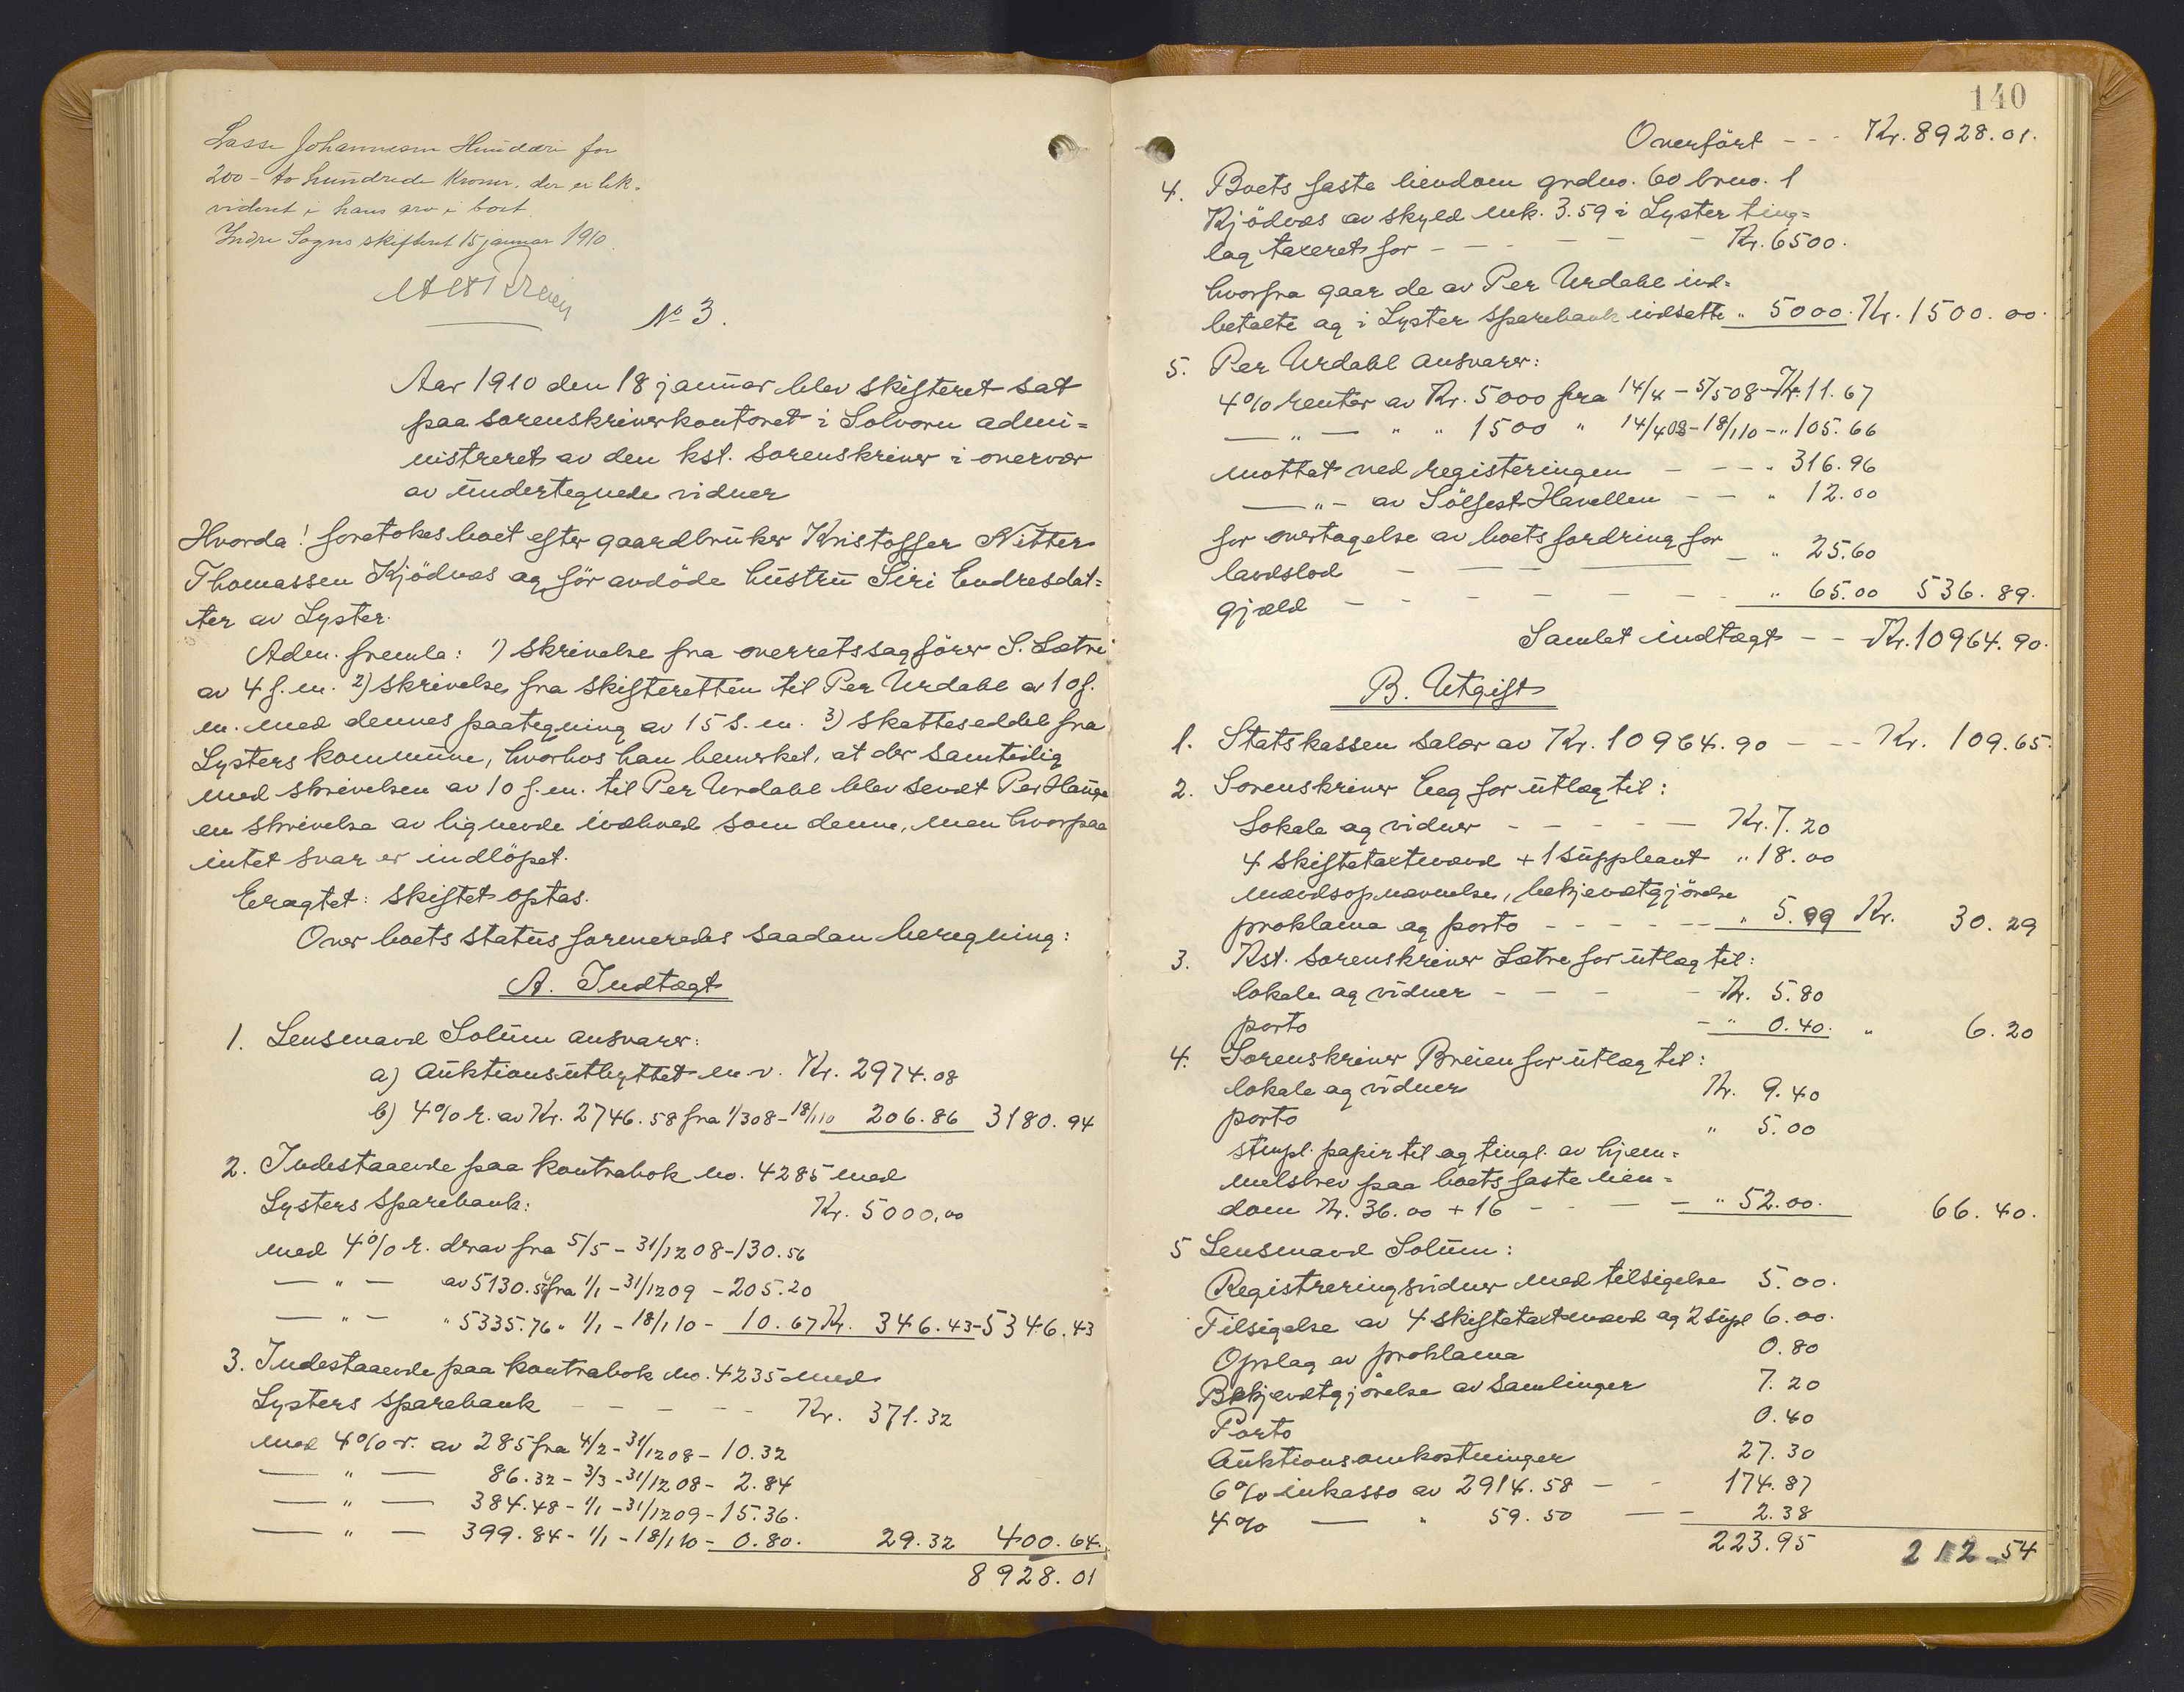 Lasse Johannesen Hundære for
200 - to hundrede kroner, der er lik-
videret i hans arv i boet.
Indre Sogns skifteret 15 januar 1910.
No 3.
Aar 1910 den 18 januar blev skifteret sat
paa sorenskriverkontoret i Solvorn admi=
nistreret av den kst. sorenskriver i overvær
av undertegnede vidner
Hvorda! foretokes boet efter gaardbruker Kristoffer Nitter
Thomassen Kjödnes og för avdöde hustru Siri Endresdat=
ter av Lyster.
Adm. fremla: 1) skrivelse fra overretssagförer S. Lætre
av 4 f.m. 2) skrivelse fra skifteretten til Per Urdahl av 10 f.
m. med dennes paategning av 15 s.m. 3) skatteseddel fra
Lysters kommune, hvorhos han bemerket, at der samtidig
med skrivelsen av 10 f.m. til Per Urdahl blev sendt Per Hauge
en skrivelse av lignende indhold som denne, men hvorpaa
intet svar er indlöpet.
Eragtet: skiftet optas.
Over boets status formeredes saadan beregning:
A. Indtægt
1. Lensmand Solum ansvarer:
a) auktionsutbyttet m.v. Kr. 2974.08
b) 4% r. av Kr. 2746.58 fra 1/3 08 - 18/1 10 206.86 3180.94
2. Indestaaende paa kontrabok no. 4285 med
Lysters sparebank: Kr. 5000.00
med 4% r. derav fra 5/5 - 31/12 08 - 130.56
— " — av 5130.56 fra 1/1 - 31/12 09 - 205.20
— " — " 5335.76 " 1/1 - 18/1 10 - 10.67 Kr. 346.43 - 5346.43
3. Indestaaende paa kontrabok no. 4235 med
Lysters sparebank - - - - - Kr. 371.32
med 4% r. av 285 fra 4/2 - 31/12 08 - 10.32
— " — 86.32 - 3/3 - 31/12 08 - 2.84
— " — 384.48 - 1/1 - 31/12 09 - 15.36.
— " — 399.84 - 1/1 - 18/1 10 - 0.80. 29.32 400.64.
8928.01
140
Overfört - - - Kr. 8928.01.
4. Boets faste eiendom grdno. 60 brno. 1
Kjödnes av skyld mk. 3.59 i Lyster ting=
lag taxeret for - - - - - - Kr. 6500.
hvorfra gaar de av Per Urdahl ind=
betalte og i Lyster sparebank indsatte " 5000. Kr. 1500.00.
5. Per Urdahl ansvarer:
4% renter av Kr. 5000 fra 14/4 - 5/5 08 - Kr. 11.67
— " — " " 1500 " 14/4 08 - 18/1 10 - " 105.66
mottat ved registeringen - - - " 316.96
— " - av Sölfest Havellen - - " 12.00
for overtagelse av boets fordring for
landslod - - - - " 25.60
gjæld - - - - - - - " 65.00 536.89.
Samlet indtægt - - Kr. 10964.90.
B. Utgift
1. Statskassen salær av Kr. 10964.90 - - - Kr. 109.65.
2. Sorenskriver Eeg for utlæg til:
Lokale og vidner - - - - - Kr. 7.20
4 skiftetaxtmænd + 1 suppleant " 18.00
mændsopnævnelse, bekjendtgjörelse
proklama og porto - - - - - - " 5.99 Kr. 30.29
3. Kst. sorenskriver Lætre for utlæg til:
lokale og vidner - - - - Kr. 5.80
porto - " 0.40. " 6.20
4. Sorenskriver Breien for utlæg til:
lokale og vidner Kr. 9.40
porto " 5.00
stempl. papir til og tingl. av hjem=
melsbrev paa boets faste eien=
dom Kr. 36.00 + 16 - - - - " 52.00. 66.40.
5 Lensmand Solum:
Registreringsvidner med tilsigelse 5.00.
Tilsigelse av 4 skiftetaxtmænd og 2 supl 6.00.
Opslag av proklama 0.80
Bekjendtgjörelse av samlinger 7.20
Porto 0.40
Auktionsomkostninger 27.30
6% inkasso av 2914.58 - - 174.87
4% — " 59.50 — - 2.38
223.95 212.54